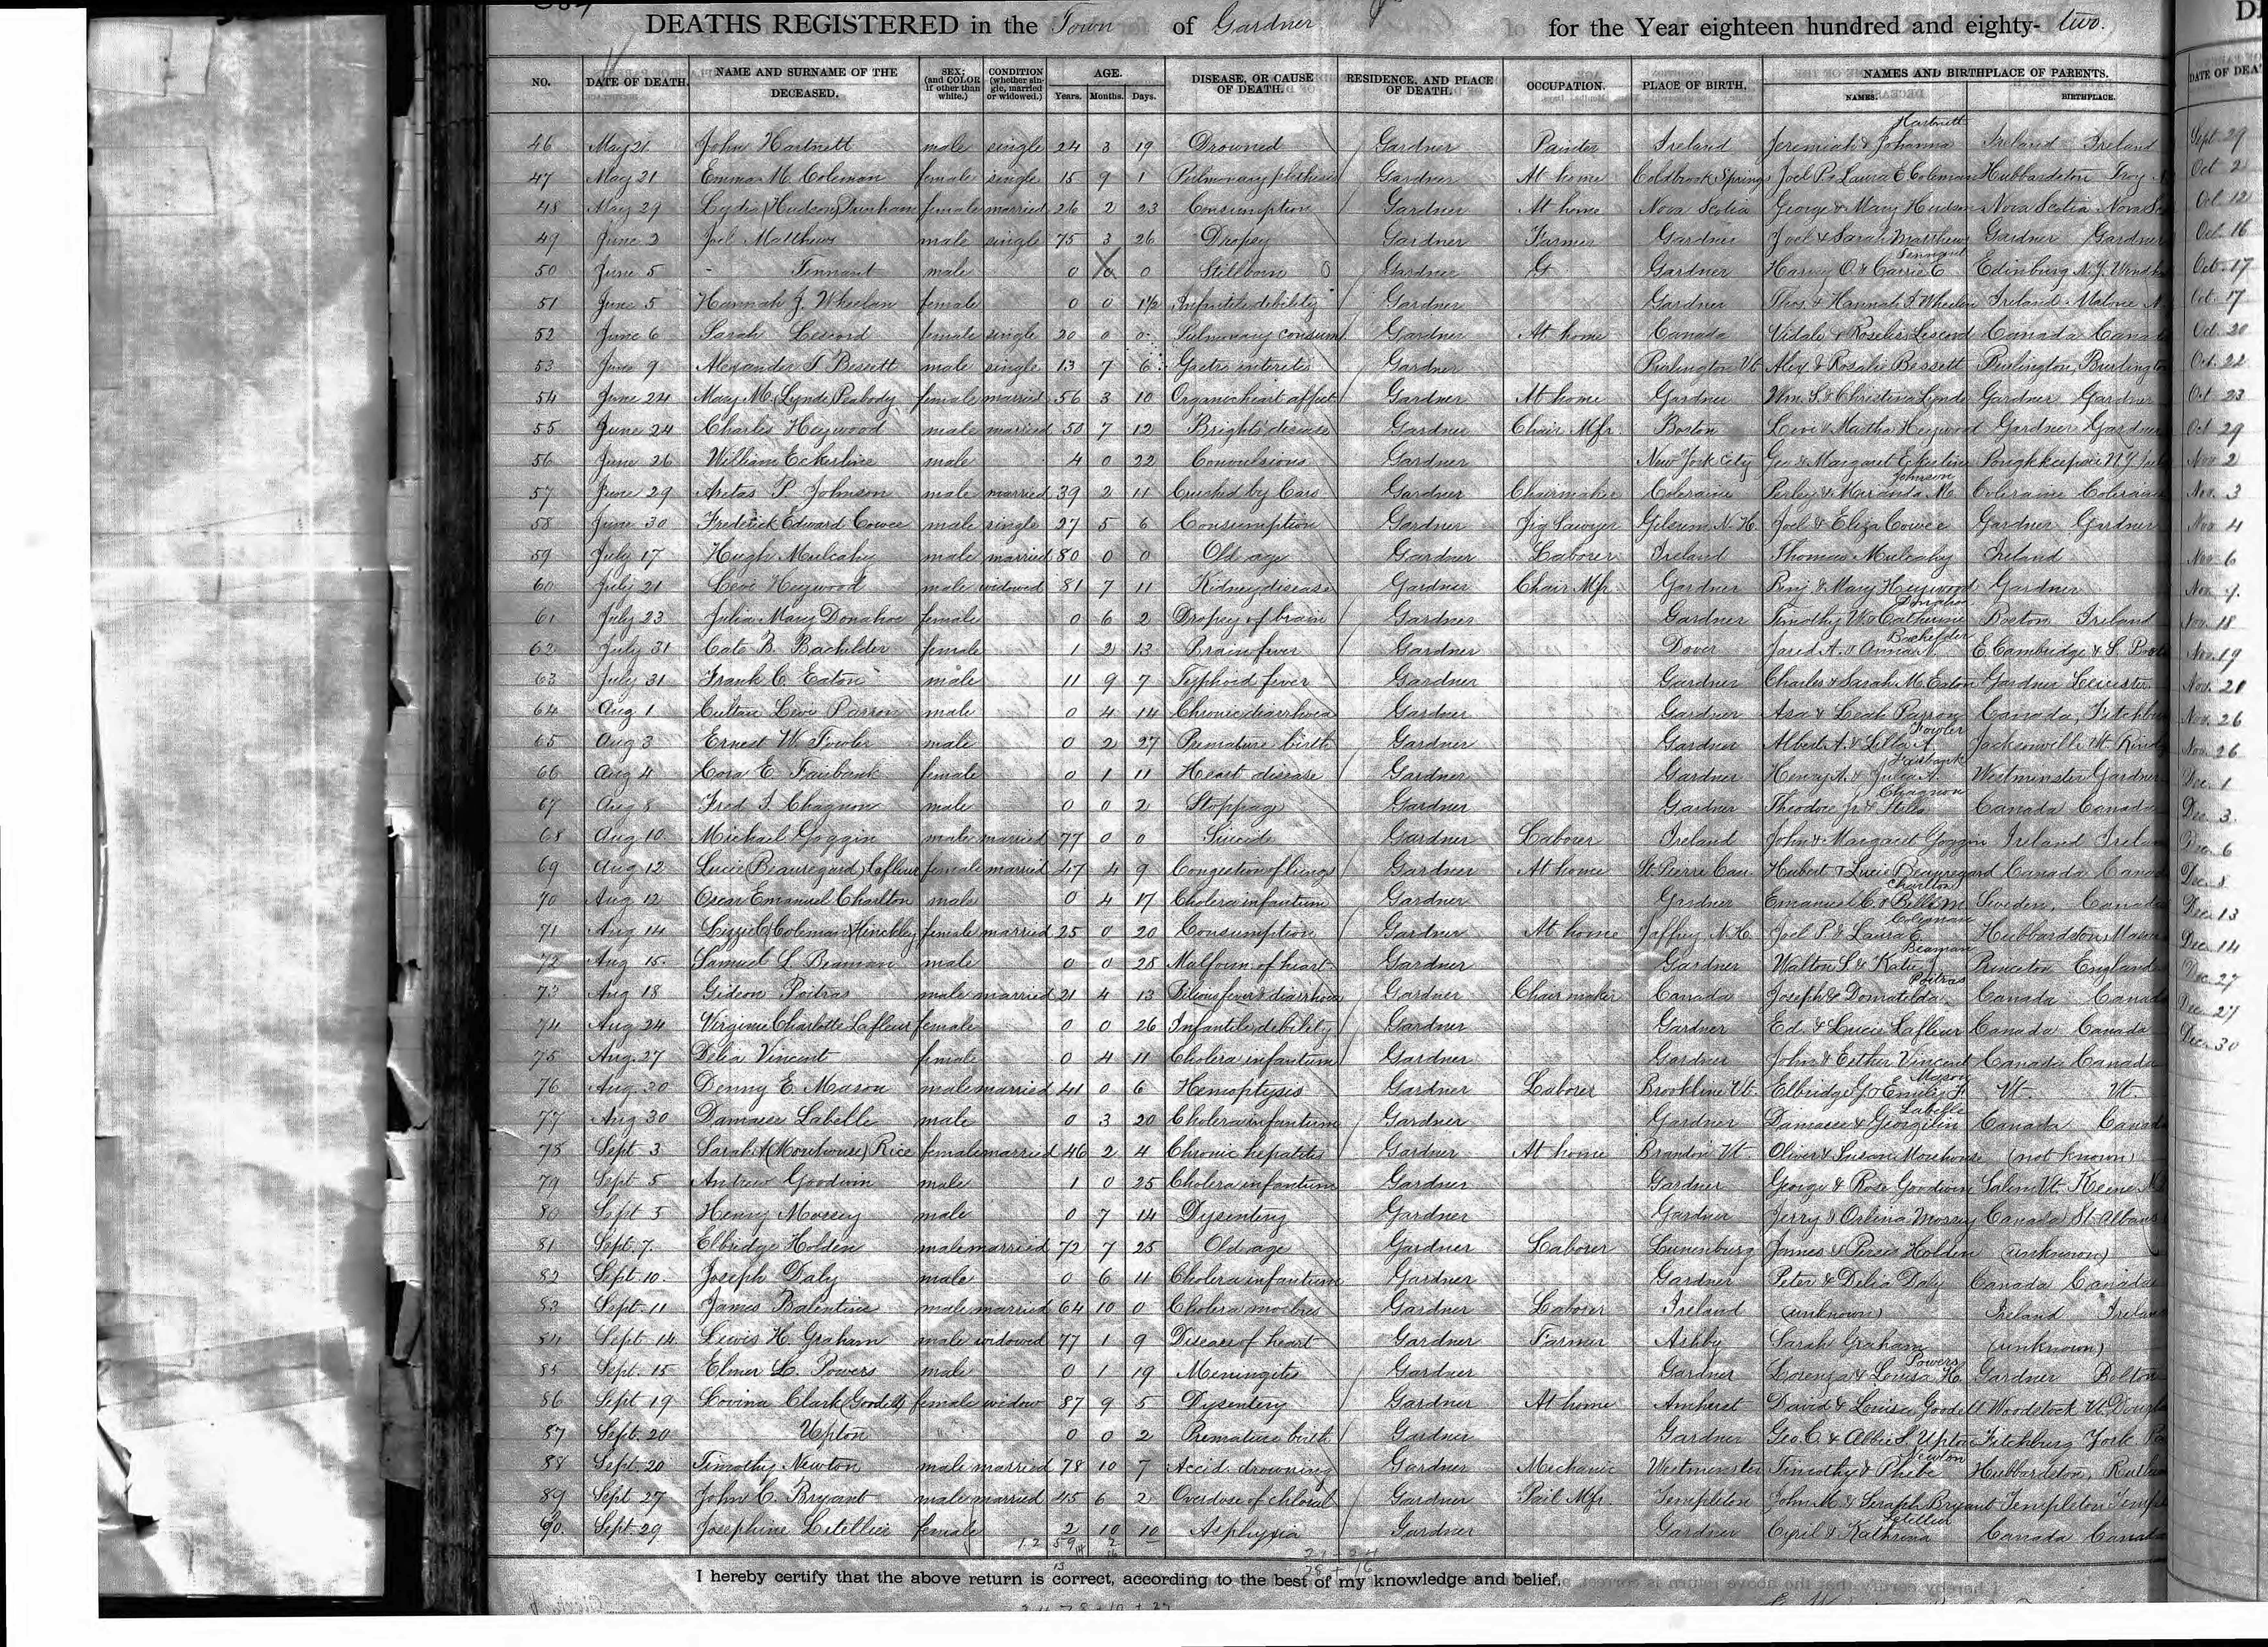 DEATHS REGISTERED in the Town of Gardner for the Year eighteen hundred and eighty- two.
NO. DATE OF DEATH. NAME AND SURNAME OF THE DECEASED. SEX; (and COLOR if other than white.) CONDITION (whether single, married or widowed.) AGE. Years. Months. Days. DISEASE, OR CAUSE OF DEATH. RESIDENCE, AND PLACE OF DEATH. OCCUPATION. PLACE OF BIRTH. NAMES AND BIRTHPLACE OF PARENTS. NAMES. BIRTHPLACE. DATE OF DEA
46 May 21. John Hartnett male single 24 3 19 Drowned Gardner Painter Ireland Jeremiah & Johanna Hartnett Ireland Ireland Sept. 29
47 May 21 Emma M. Coleman female single 15 9 1 Pulmonary Gardner At home Coldbrook Springs Joel P. & Laura E Coleman Hubbardston Troy Oct 2
48 May 29 Lydia (Hudson) Dunham female married 26 2 23 Consumption Gardner At home Nova Scotia George & Mary Hudson Nova Scotia Oct 12
49 June 2 Joel Matthews male single 75 3 26 Dropsy Gardner Farmer Gardner Joel & Sarah Matthews Gardner Gardner Oct. 16
50 June 5 - Tennant male 0 0 0 Stillborn Gardner Gardner Harvey O. & Carrie E Tennant Edinburg N.Y. Oct. 17
51 June 5 Hannah J. Wheelan female 0 0 1½ Infantile debility Gardner Gardner Thos. & Hannah J. Wheelan Ireland Malone Oct. 17
52 June 6 Sarah Lescord female single 20 0 0 Pulmonary consum Gardner At home Canada Vidale & Roselis Lescord Canada Canada Oct. 20
53 June 9 Alexander T. Bessett male single 13 7 6 Gastro enteretis Gardner Burlington Vt Alex & Rosalie Bessett Burlington, Burlington Oct. 22
54 June 24 Mary M. (Lynde) Peabody female married 56 3 10 Organic heart affect Gardner At home Gardner Wm. S. & Christina Lynde Gardner Gardner Oct 23
55 June 24 Charles Heywood male married 50 7 12 Brights disease Gardner Chair Mfr Boston Levi & Martha Heywood Gardner Gardner Oct 29
56 June 26 William Eckerline male 4 0 22 Convulsions Gardner New York City Geo & Margaret Eckerline Poughkeepsie N.Y. Nov 2
57 June 29 Aretas P. Johnson male married 39 2 11 Crushed by Cars Gardner Chairmaker Coleraine Perley & Miranda M. Johnson Coleraine Coleraine Nov. 3
58 June 30 Frederick Edward Cowee male single 27 5 6 Consumption Gardner Jig Sawyer Gilsum N.H. Joel & Eliza Cowee Gardner Gardner Nov 4
59 July 17 Hugh Mulcahy male married 80 0 0 Old age Gardner Laborer Ireland Thomas Mulcahy Ireland Nov. 6
60 July 21 Levi Heywood male widowed 81 7 11 Kidney disease Gardner Chair Mfr Gardner Benj & Mary Heywood Gardner Nov. 7.
61 July 23 Julia Mary Donahoe female 0 6 2 Dropsy of brain Gardner Gardner Timothy W. & Catherine Donahoe Boston Ireland Nov. 18
62 July 31 Cate B. Bachelder female 1 2 13 Brain fever Gardner Dover Jared A. & Anna A. Bachelder E. Cambridge & S. Nov. 19
63 July 31 Frank C. Eaton male 11 9 7 Typhoid fever Gardner Gardner Charles & Sarah M. Eaton Gardner Leicester Nov. 21
64 Aug 1 Levi Parron male 0 4 14 Chronic diarrhoea Gardner Gardner Asa & Leah Parron Canada, Fitchbu Nov. 26
65 Aug 3 Ernest W. Fowler male 0 2 27 Premature birth Gardner Gardner Albert A. & Lilla A. Fowler Jacksonville Vt. Nov. 26
66 Aug 4 Cora E. Fairbank female 0 1 11 Heart disease Gardner Gardner Henry A. & Julia A. Fairbank Westminster Gardner Dec. 1
67 Aug 8 Fred I. Chagnon male 0 0 2 Stoppage Gardner Gardner Theodore Jr & Stella Chagnon Canada Canada Dec. 3.
68 Aug 10 Michael Goggin male married 77 0 0 Suicide Gardner Laborer Ireland John & Margaret Goggin Ireland Irelan Dec. 6
69 Aug 12 Lucie (Beauregard) Lafleur female married 47 4 9 Congestion of lungs Gardner At home St. Pierre Can. Hubert & Lucie Beauregard Canada Canad Dec. 8
70 Aug 12 Oscar Emanuel Charlton male 0 4 17 Cholera infantum Gardner Gardner Emanuel C. & Charlton Sweden, Canada Dec. 13
71 Aug 14 Lizzie C (Coleman) Hinckley female married 25 0 20 Consumption Gardner At home Jaffrey N.H. Joel P. & Laura E. Coleman Hubbardston, Mason Dec. 14
72 Aug 15. Samuel L. Beaman male 0 0 28 Malform. of heart Gardner Gardner Walton S. & Katie J Beaman Princeton England Dec. 27
73 Aug 18 Gideon Poitras male married 21 4 13 Bilious fever & diarrhoea Gardner Chair maker Canada Joseph & Domatilda Poitras Canada Canad Dec. 27
74 Aug 24 Virginie Charlotte Lafleur female 0 0 26 Infantile debility Gardner Gardner Ed. & Lucie Lafleur Canada Canada Dec. 30
75 Aug. 27 Delia Vincent female 0 4 11 Cholera infantum Gardner Gardner John & Esther Vincent Canada Canada
76 Aug. 30 Denny E. Mason male married 41 0 6 Hemoptysis Gardner Laborer Brookline Vt. Elbridge G. & Emily F. Mason Vt. Vt.
77 Aug 30 Damase Labelle male 0 3 20 Cholera infantum Gardner Gardner Damase & Georgilin Labelle Canada Canad
78 Sept 3 Sarah A (Morehouse) Rice female married 46 2 4 Chronic hepatitis Gardner At home Brandon Vt. Oliver & Susan Morehouse (not known)
79 Sept 5 Andrew Goodwin male 1 0 25 Cholera infantum Gardner Gardner George & Rose Goodwin Salem Vt. Keene N
80 Sept 5 Henry Mossey male 0 7 14 Dysentery Gardner Gardner Jerry & Orlina Mossey Canada St. Albans
81 Sept. 7. Elbridge Holden male married 72 7 25 Old age Gardner Laborer Lunenburg James & Persis Holden (unknown)
82 Sept. 10. Joseph Daly male 0 6 11 Cholera infantum Gardner Gardner Peter & Delia Daly Canada Canada
83 Sept. 11 James Balentine male married 64 10 0 Cholera morbus Gardner Laborer Ireland (unknown) Ireland Irelan
84 Sept. 14. Lewis H. Graham male widowed 77 1 9 Disease of heart Gardner Farmer Ashby Sarah Graham (unknown)
85 Sept. 15 Elmer L. Powers male 0 1 19 Meningitis Gardner Gardner Lorenza & Louisa H. Powers Gardner Bolton
86 Sept 19 Lovina Clark (Goodell) female widow 87 9 5 Dysentery Gardner At home Amherst David & Louisa Goodell Woodstock Vt. Dougla
87 Sept. 20 Upton " 0 0 2 Premature birth Gardner Gardner Geo. C. & Abbie S. Upton Fitchburg York
88 Sept. 20 Timothy Newton male married 78 10 7 Accid. drowning Gardner Mechanic Westminster Timothy & Phebe Newton Hubbardston, Rutlan
89 Sept 27 John C. Bryant male married 45 6 2 Overdose of chloral Gardner Pail Mfr. Templeton John M. & Seraph Bryant Templeton Temple
90. Sept. 29 Josephine Letellier female 2 10 10 Asphyxia Gardner Gardner Cyril & Kathrina Letellier Canada Canada
I hereby certify that the above return is correct, according to the best of my knowledge and belief.